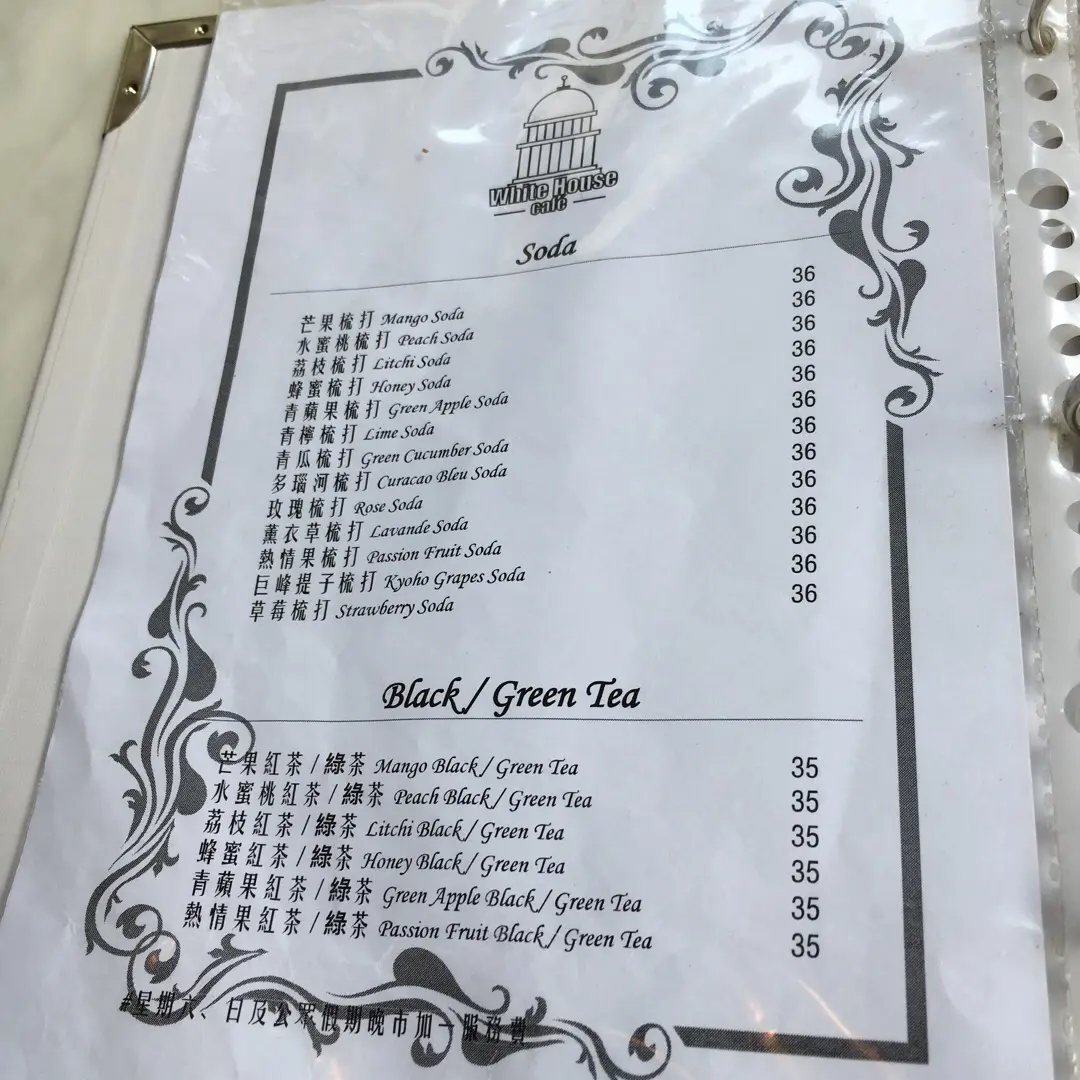 White House
café
Soda
芒果梳打 Mango Soda 36
水蜜桃梳打 Peach Soda 36
荔枝梳打 Litchi Soda 36
蜂蜜梳打 Honey Soda 36
青蘋果梳打 Green Apple Soda 36
青檸梳打 Lime Soda 36
青瓜梳打 Green Cucumber Soda 36
多瑙河梳打 Curacao Bleu Soda 36
玫瑰梳打 Rose Soda 36
薰衣草梳打 Lavande Soda 36
熱情果梳打 Passion Fruit Soda 36
巨峰提子梳打 Kyoho Grapes Soda 36
草莓梳打 Strawberry Soda 36
Black / Green Tea
芒果紅茶 / 綠茶 Mango Black / Green Tea 35
水蜜桃紅茶 / 綠茶 Peach Black / Green Tea 35
荔枝紅茶 / 綠茶 Litchi Black / Green Tea 35
蜂蜜紅茶 / 綠茶 Honey Black / Green Tea 35
青蘋果紅茶 / 綠茶 Green Apple Black / Green Tea 35
熱情果紅茶 / 綠茶 Passion Fruit Black / Green Tea 35
#星期六、日及公眾假期晚市加一服務費